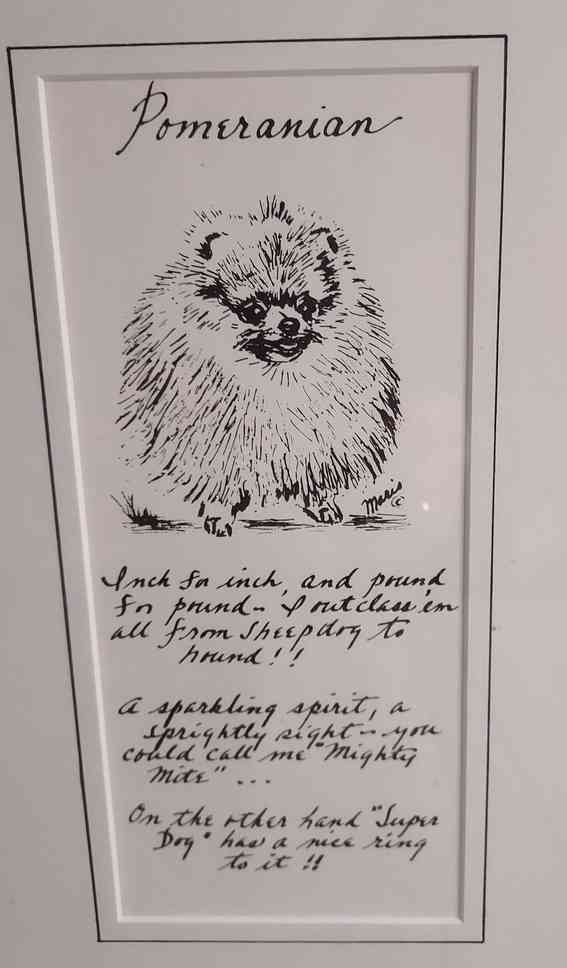 Pomeranian
Maris ©
Inch for inch, and pound
for pound~ I outclass 'em
all from Sheepdog to
hound!!
A sparkling spirit, a
sprightly sight~ you
could call me "Mighty
Mite" ...
On the other hand "Super
Dog" has a nice ring
to it !!